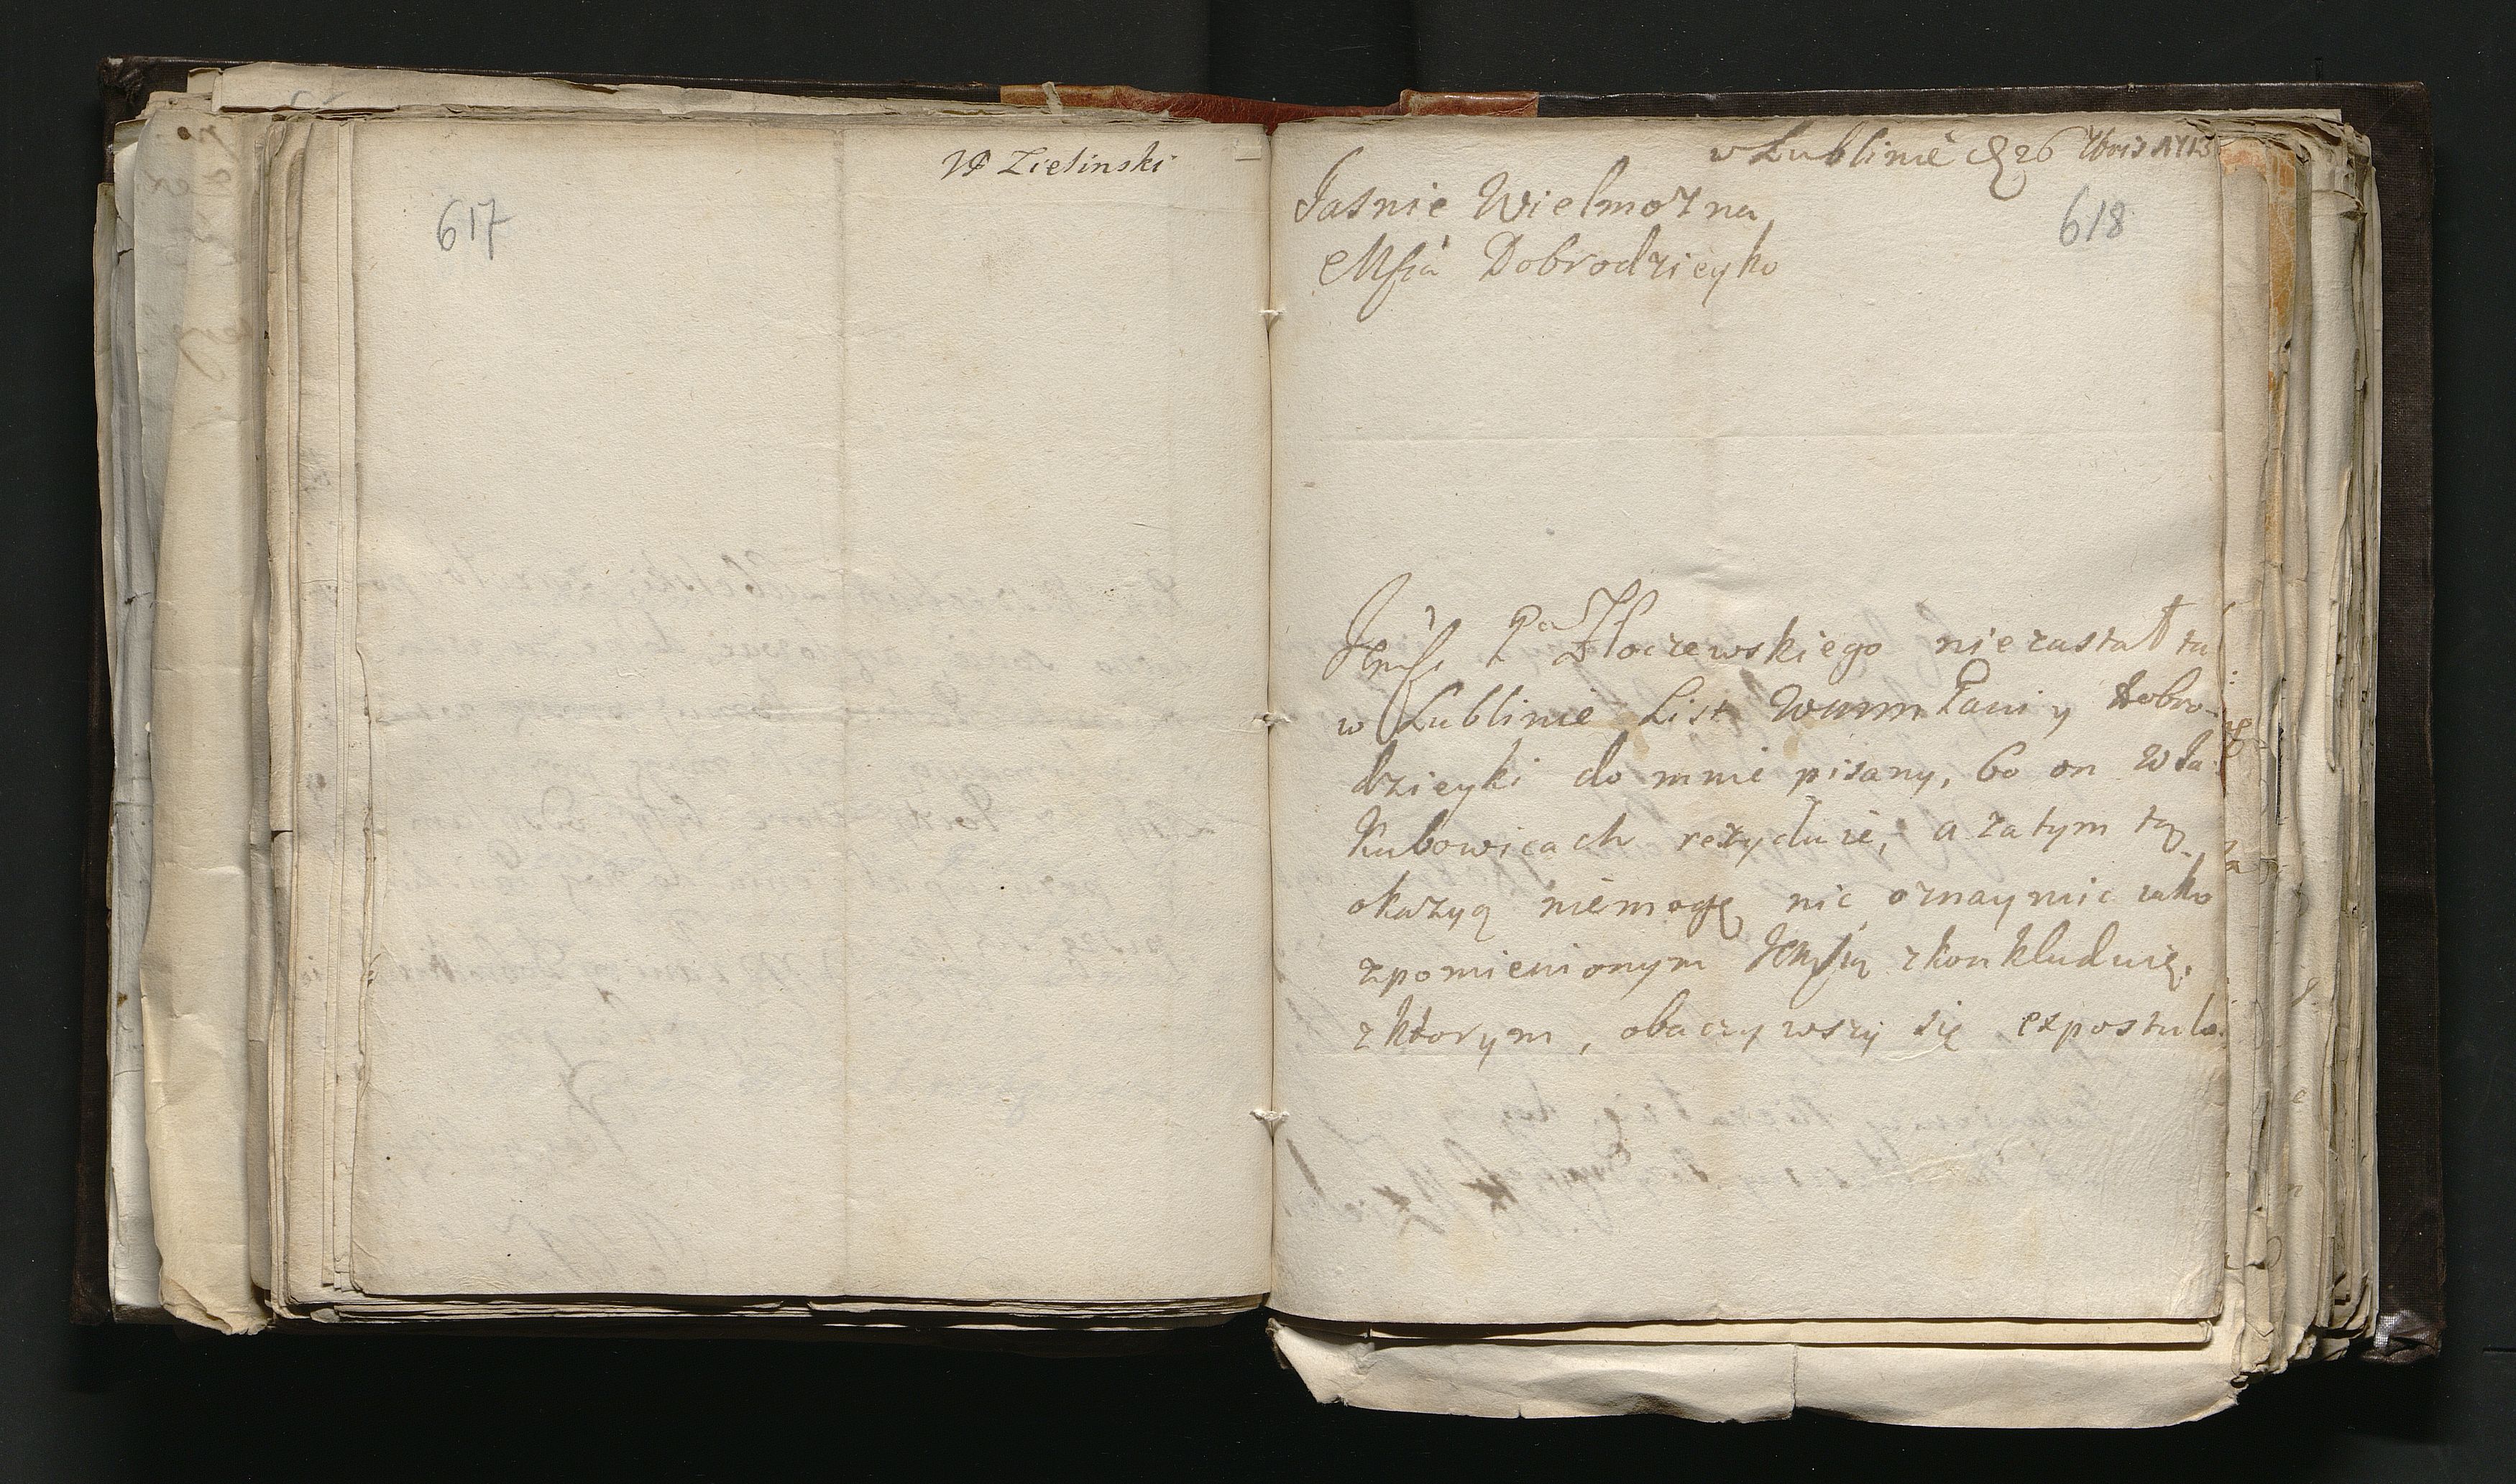 W Zielinski
617
w Lublinie 26 1713
618
Jasnie Wielmozna
Mscia Dobrodzieyko
Złoczewskiego niezastał tu
w Lublinie List Wmm Pani y dobro-
dzieyki do mnie pisany, bo on w Ja-
kubowicach rezyduie, a zatym tą
okazyą niemogę nic oznaymic iako
zpomienionym Jmscią zkonkluduię.
zktorym, obaczywszy się expostulo-